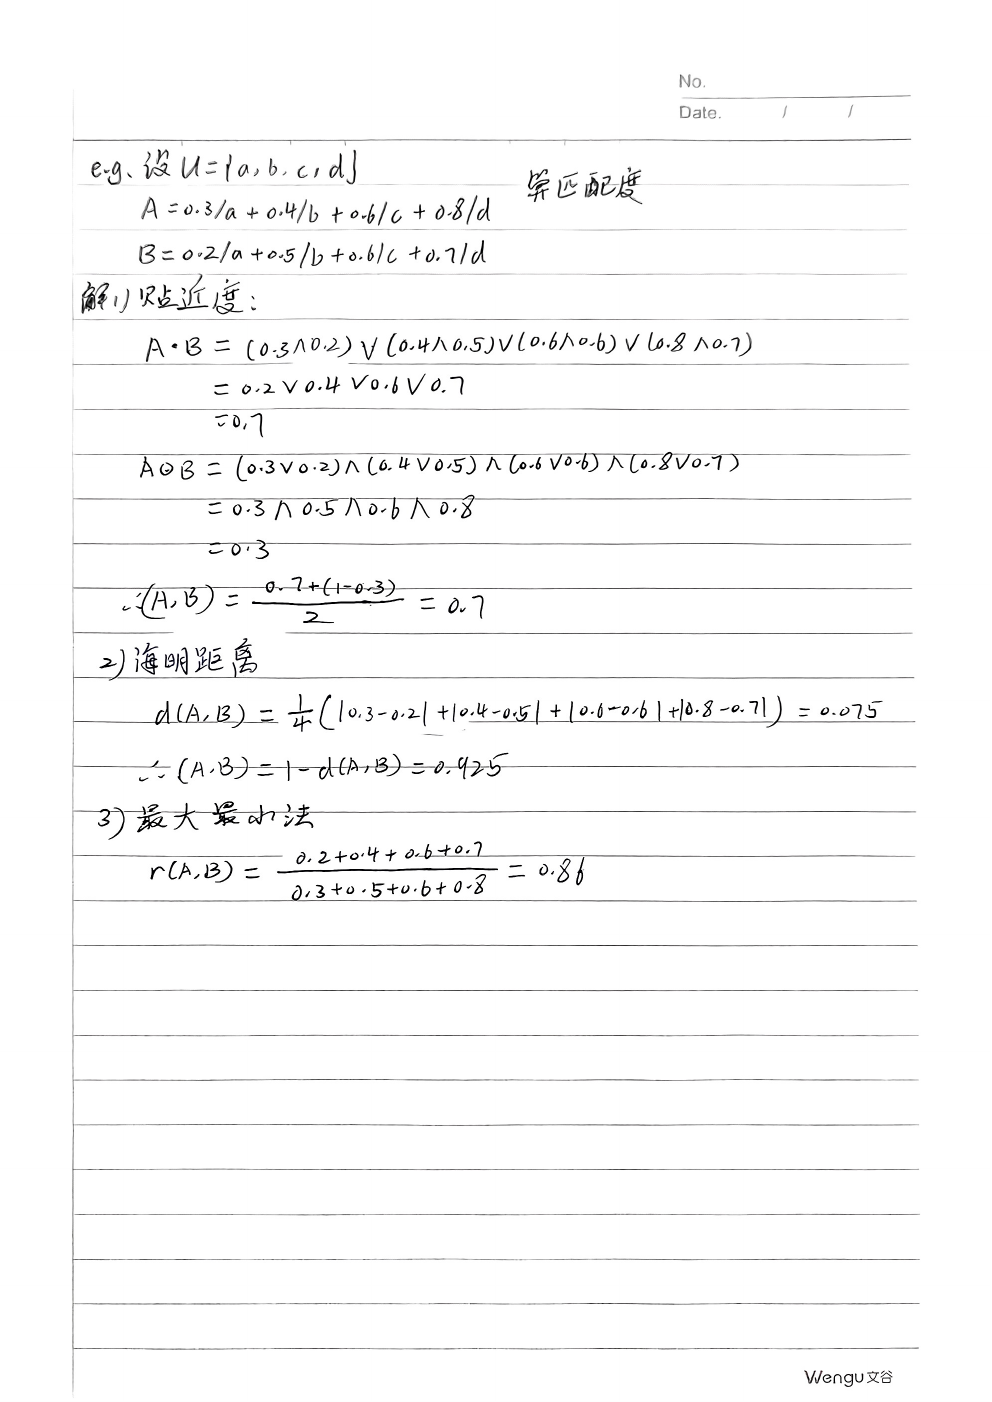 No.
Date. / /
e.g、设 U={a,b,c,d}
算匹配度
A=0.3/a+0.4/b+0.6/c+0.8/d
B=0.2/a+0.5/b+0.6/c+0.7/d
解1)贴近度:
A·B=(0.3∧0.2)∨(0.4∧0.5)∨(0.6∧0.6)∨(0.8∧0.7)
=0.2∨0.4∨0.6∨0.7
=0.7
A⊙B=(0.3∨0.2)∧(0.4∨0.5)∧(0.6∨0.6)∧(0.8∨0.7)
=0.3∧0.5∧0.6∧0.8
=0.3
∴(A,B)=\frac{0.7+(1-0.3)}{2}=0.7
2)海明距离
d(A,B)=\frac{1}{4}(|0.3-0.2|+|0.4-0.5|+|0.6-0.6|+|0.8-0.7|)=0.075
∴(A,B)=1-d(A,B)=0.925
3)最大最小法
r(A,B)=\frac{0.2+0.4+0.6+0.7}{0.3+0.5+0.6+0.8}=0.86
Wengu文谷